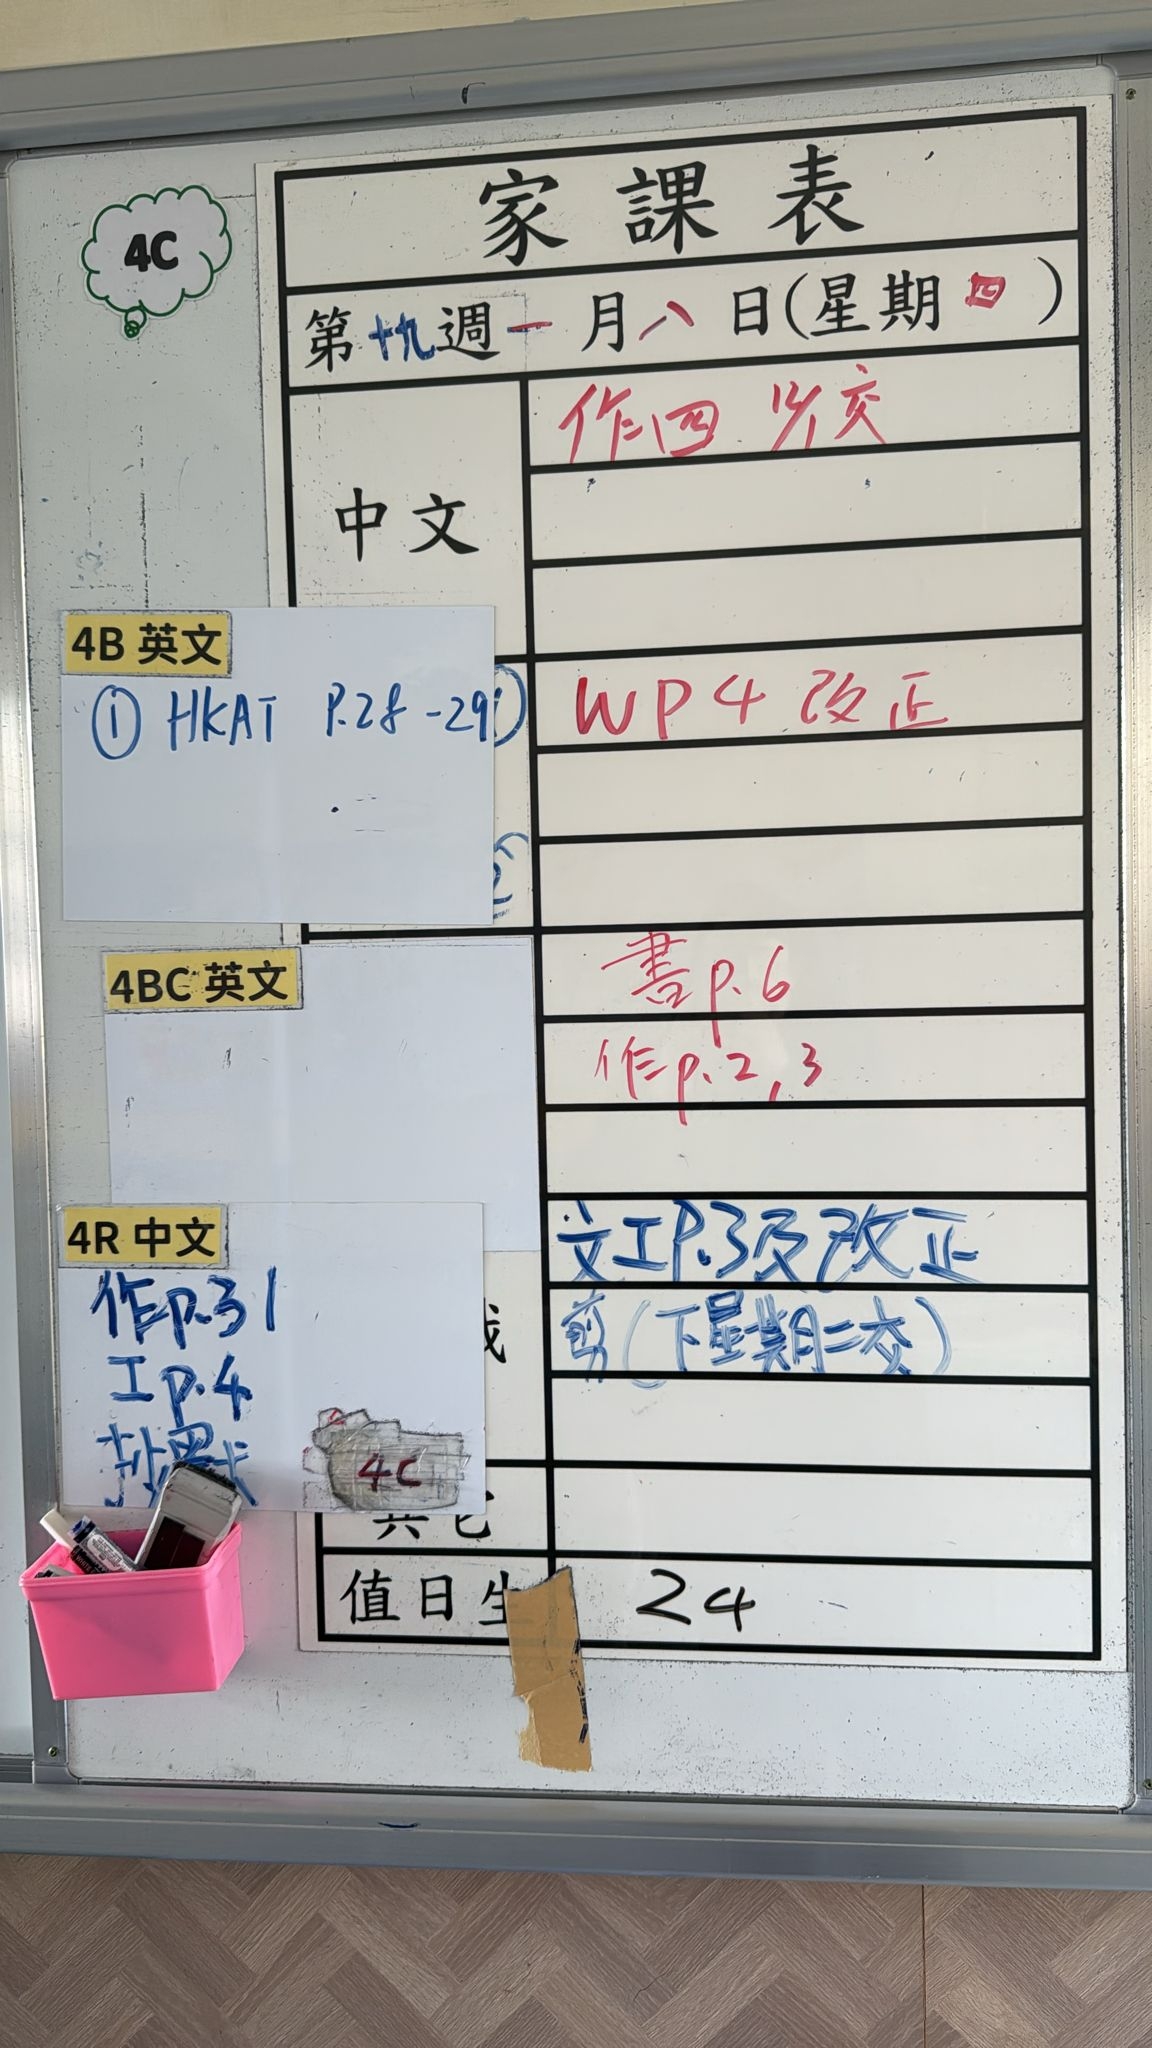 家課表
4C
第十九週一月八日(星期四)
中文
作四 12/1交
4B 英文
① HKAT P.28-29
WP4 改正
4BC 英文
書p.6
作p.2,3
4R 中文
作p.31
工p.4
抄畧卡
4C
文工P.3及改正
剪(下星期二交)
其它
值日生 24